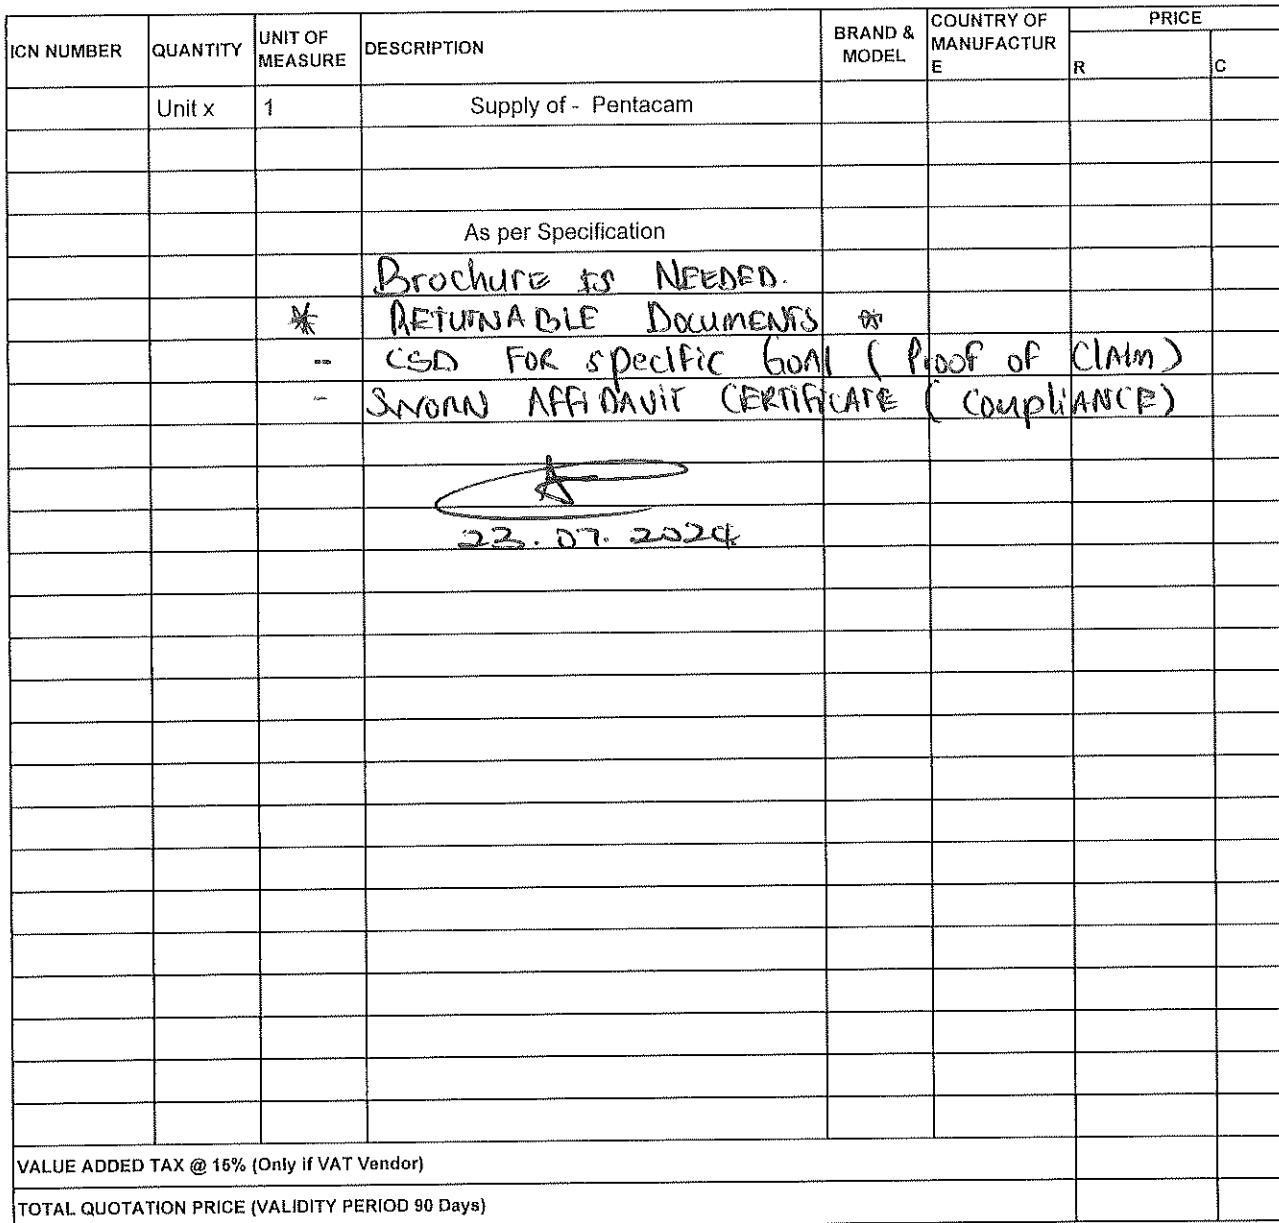 ICN NUMBER QUANTITY UNIT OF MEASURE DESCRIPTION BRAND & MODEL COUNTRY OF MANUFACTUR E PRICE R C
Unit x 1 Supply of - Pentacam
As per Specification
Brochure is NEEDED.
* RETURNABLE DOCUMENTS *
- CSD FOR specific Goal (Proof of Claim)
- SWORN AFFIDAVIT CERTIFICATE (compliANCE)
23.07.2024
VALUE ADDED TAX @ 15% (Only if VAT Vendor)
TOTAL QUOTATION PRICE (VALIDITY PERIOD 90 Days)